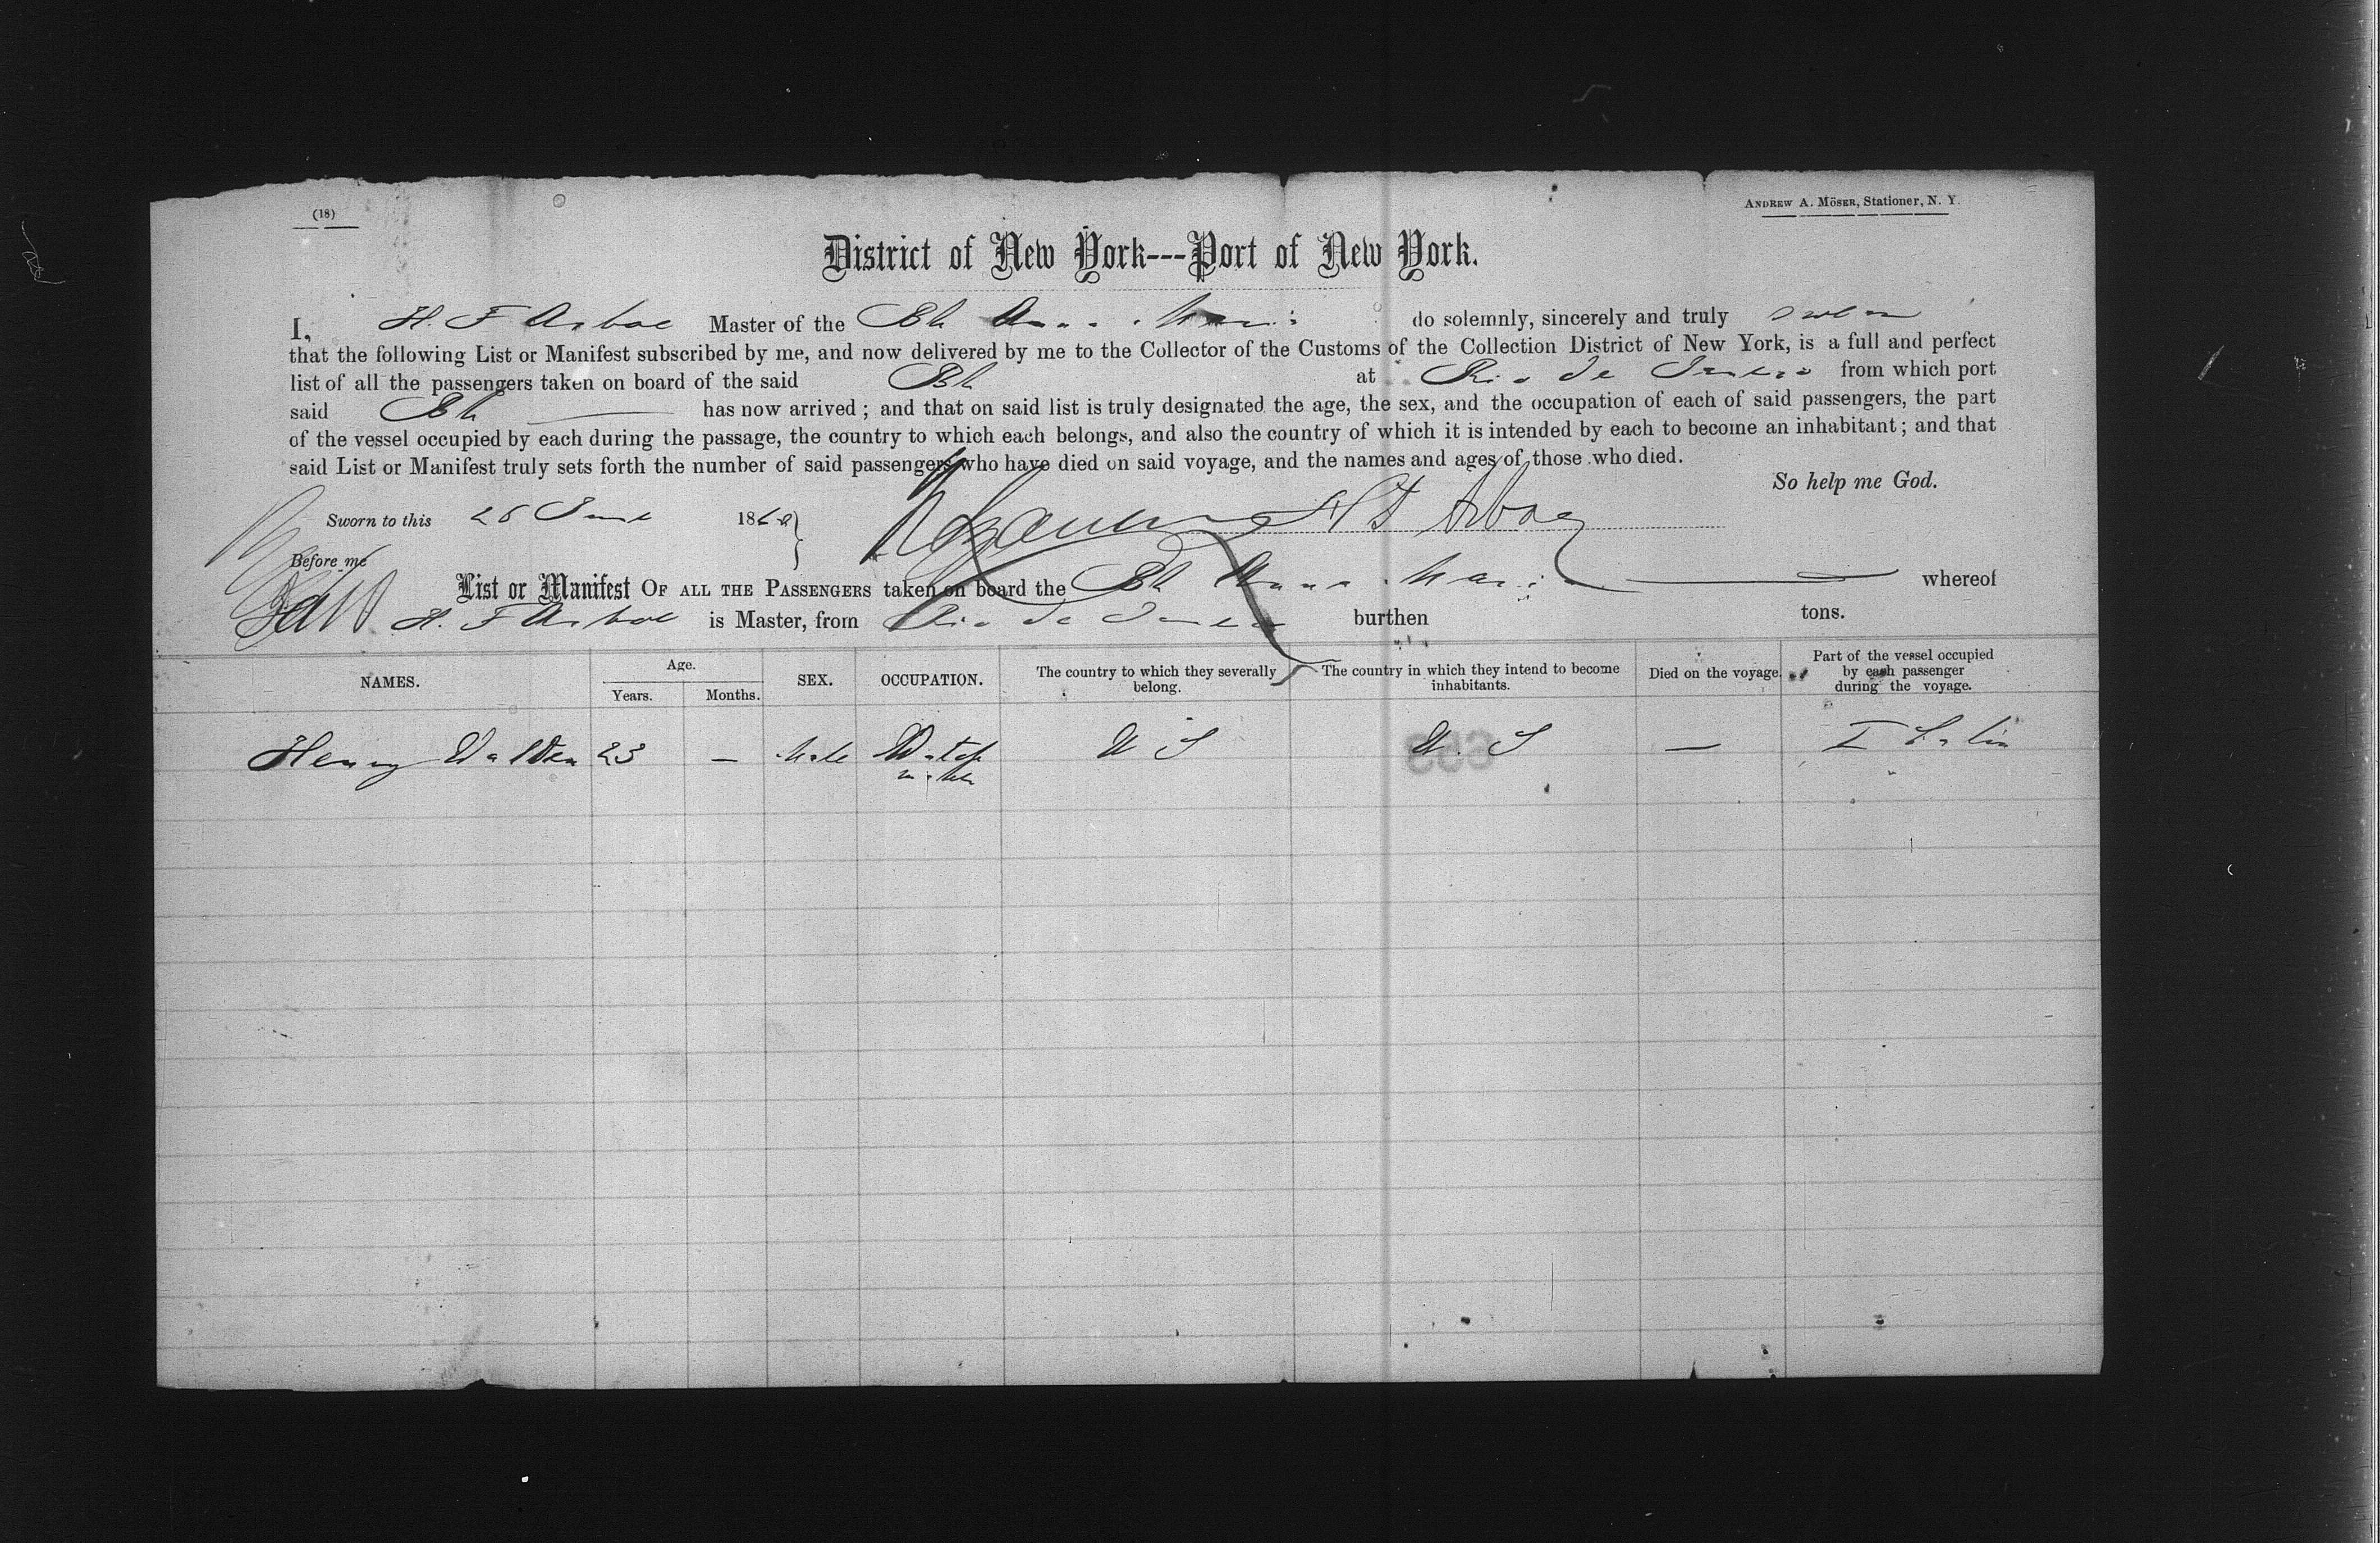 (18)
ANDREW A. MÖSER, Stationer, N. Y.
District of New York---Port of New York.
I, H. F Arboe Master of the Bk Anna Mari do solemnly, sincerely and truly swear
that the following List or Manifest subscribed by me, and now delivered by me to the Collector of the Customs of the Collection District of New York, is a full and perfect
list of all the passengers taken on board of the said Bk at Rio de Janeiro from which port
said Bk has now arrived; and that on said list is truly designated the age, the sex, and the occupation of each of said passengers, the part
of the vessel occupied by each during the passage, the country to which each belongs, and also the country of which it is intended by each to become an inhabitant; and that
said List or Manifest truly sets forth the number of said passengers who have died on said voyage, and the names and ages of those who died.
So help me God.
Sworn to this 26 June 186 H F Arboe
Before me
List or Manifest OF ALL THE PASSENGERS taken on board the Bk Anna Mari whereof
H. F Arboe is Master, from Rio de Janeiro burthen tons.
NAMES. Age. Years. Months. SEX. OCCUPATION. The country to which they severally belong. The country in which they intend to become inhabitants. Died on the voyage. Part of the vessel occupied by each passenger during the voyage.
Henry Walden 23 — Male Watch maker U S U. S — I Cabin